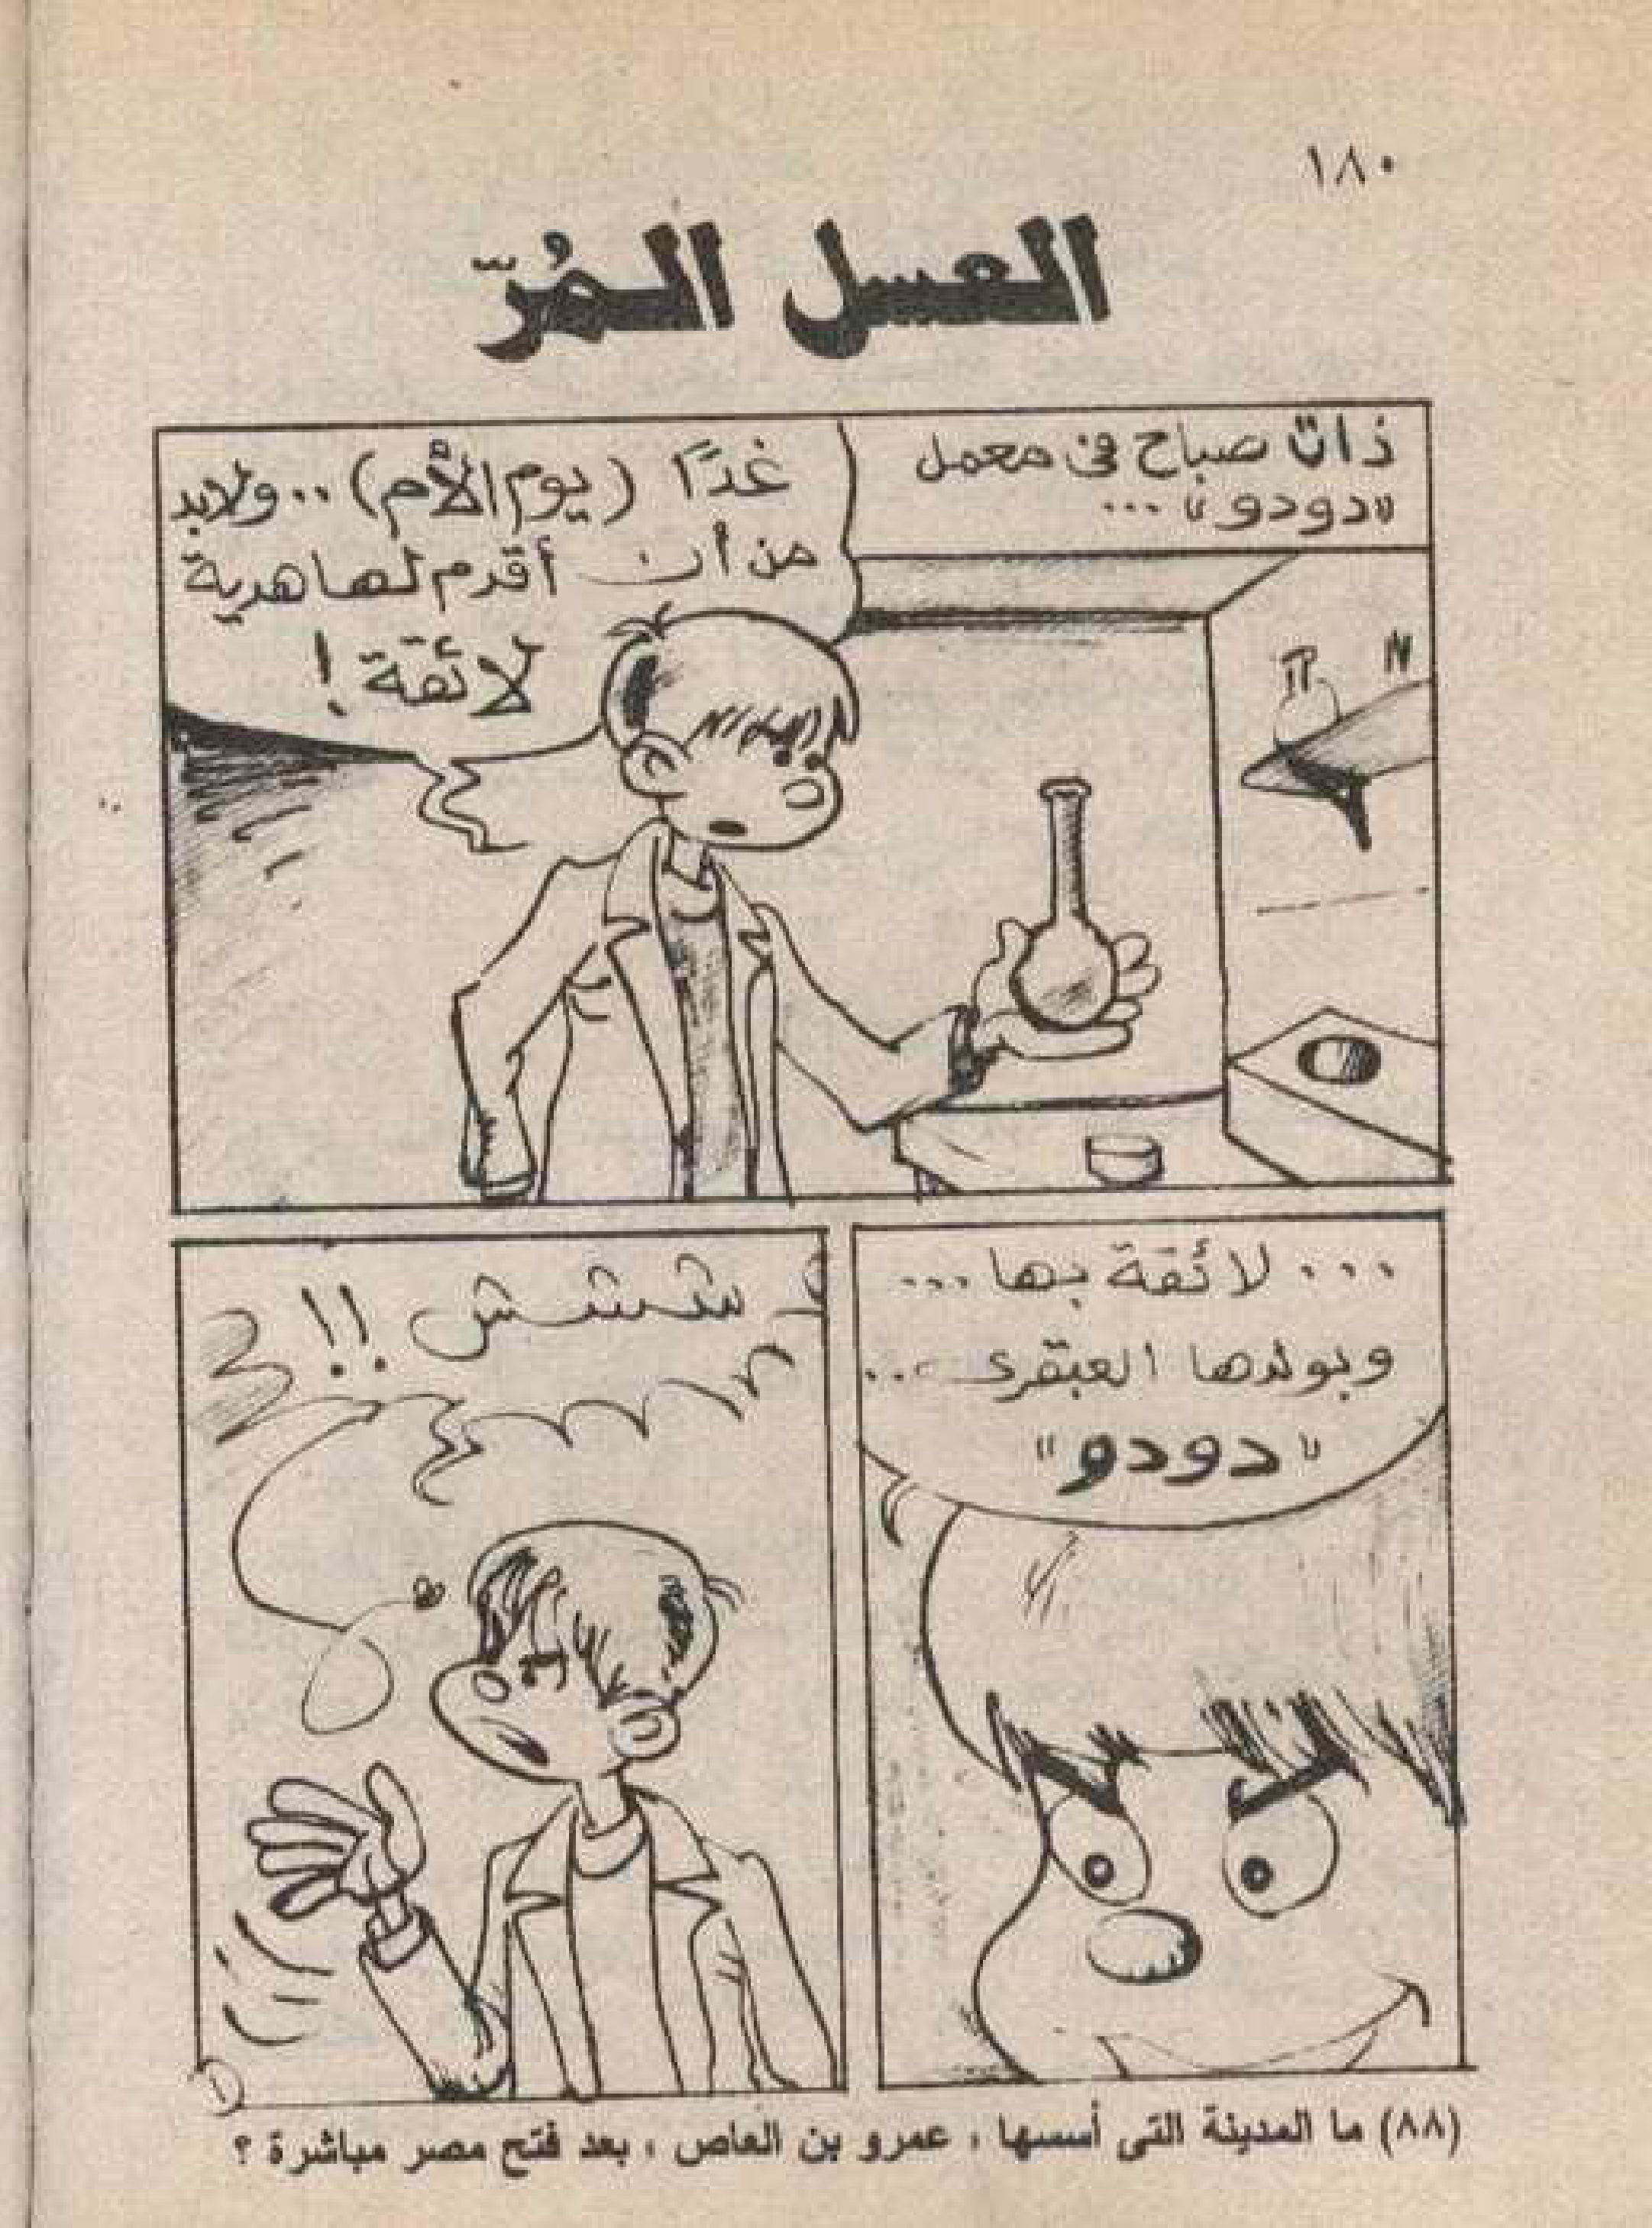 ١٨٠
العسل المُرّ
ذات صباح فى معمل
«دودو» ...
غدًا (يوم الأم) .. ولابد
من أن أقدم لها هدية
لائقة !
... لائقة بها ...
وبولدها العبقرى ...
«دودو»
ششش !!
١
(٨٨) ما المدينة التى أسسها ، عمرو بن العاص ، بعد فتح مصر مباشرة ؟